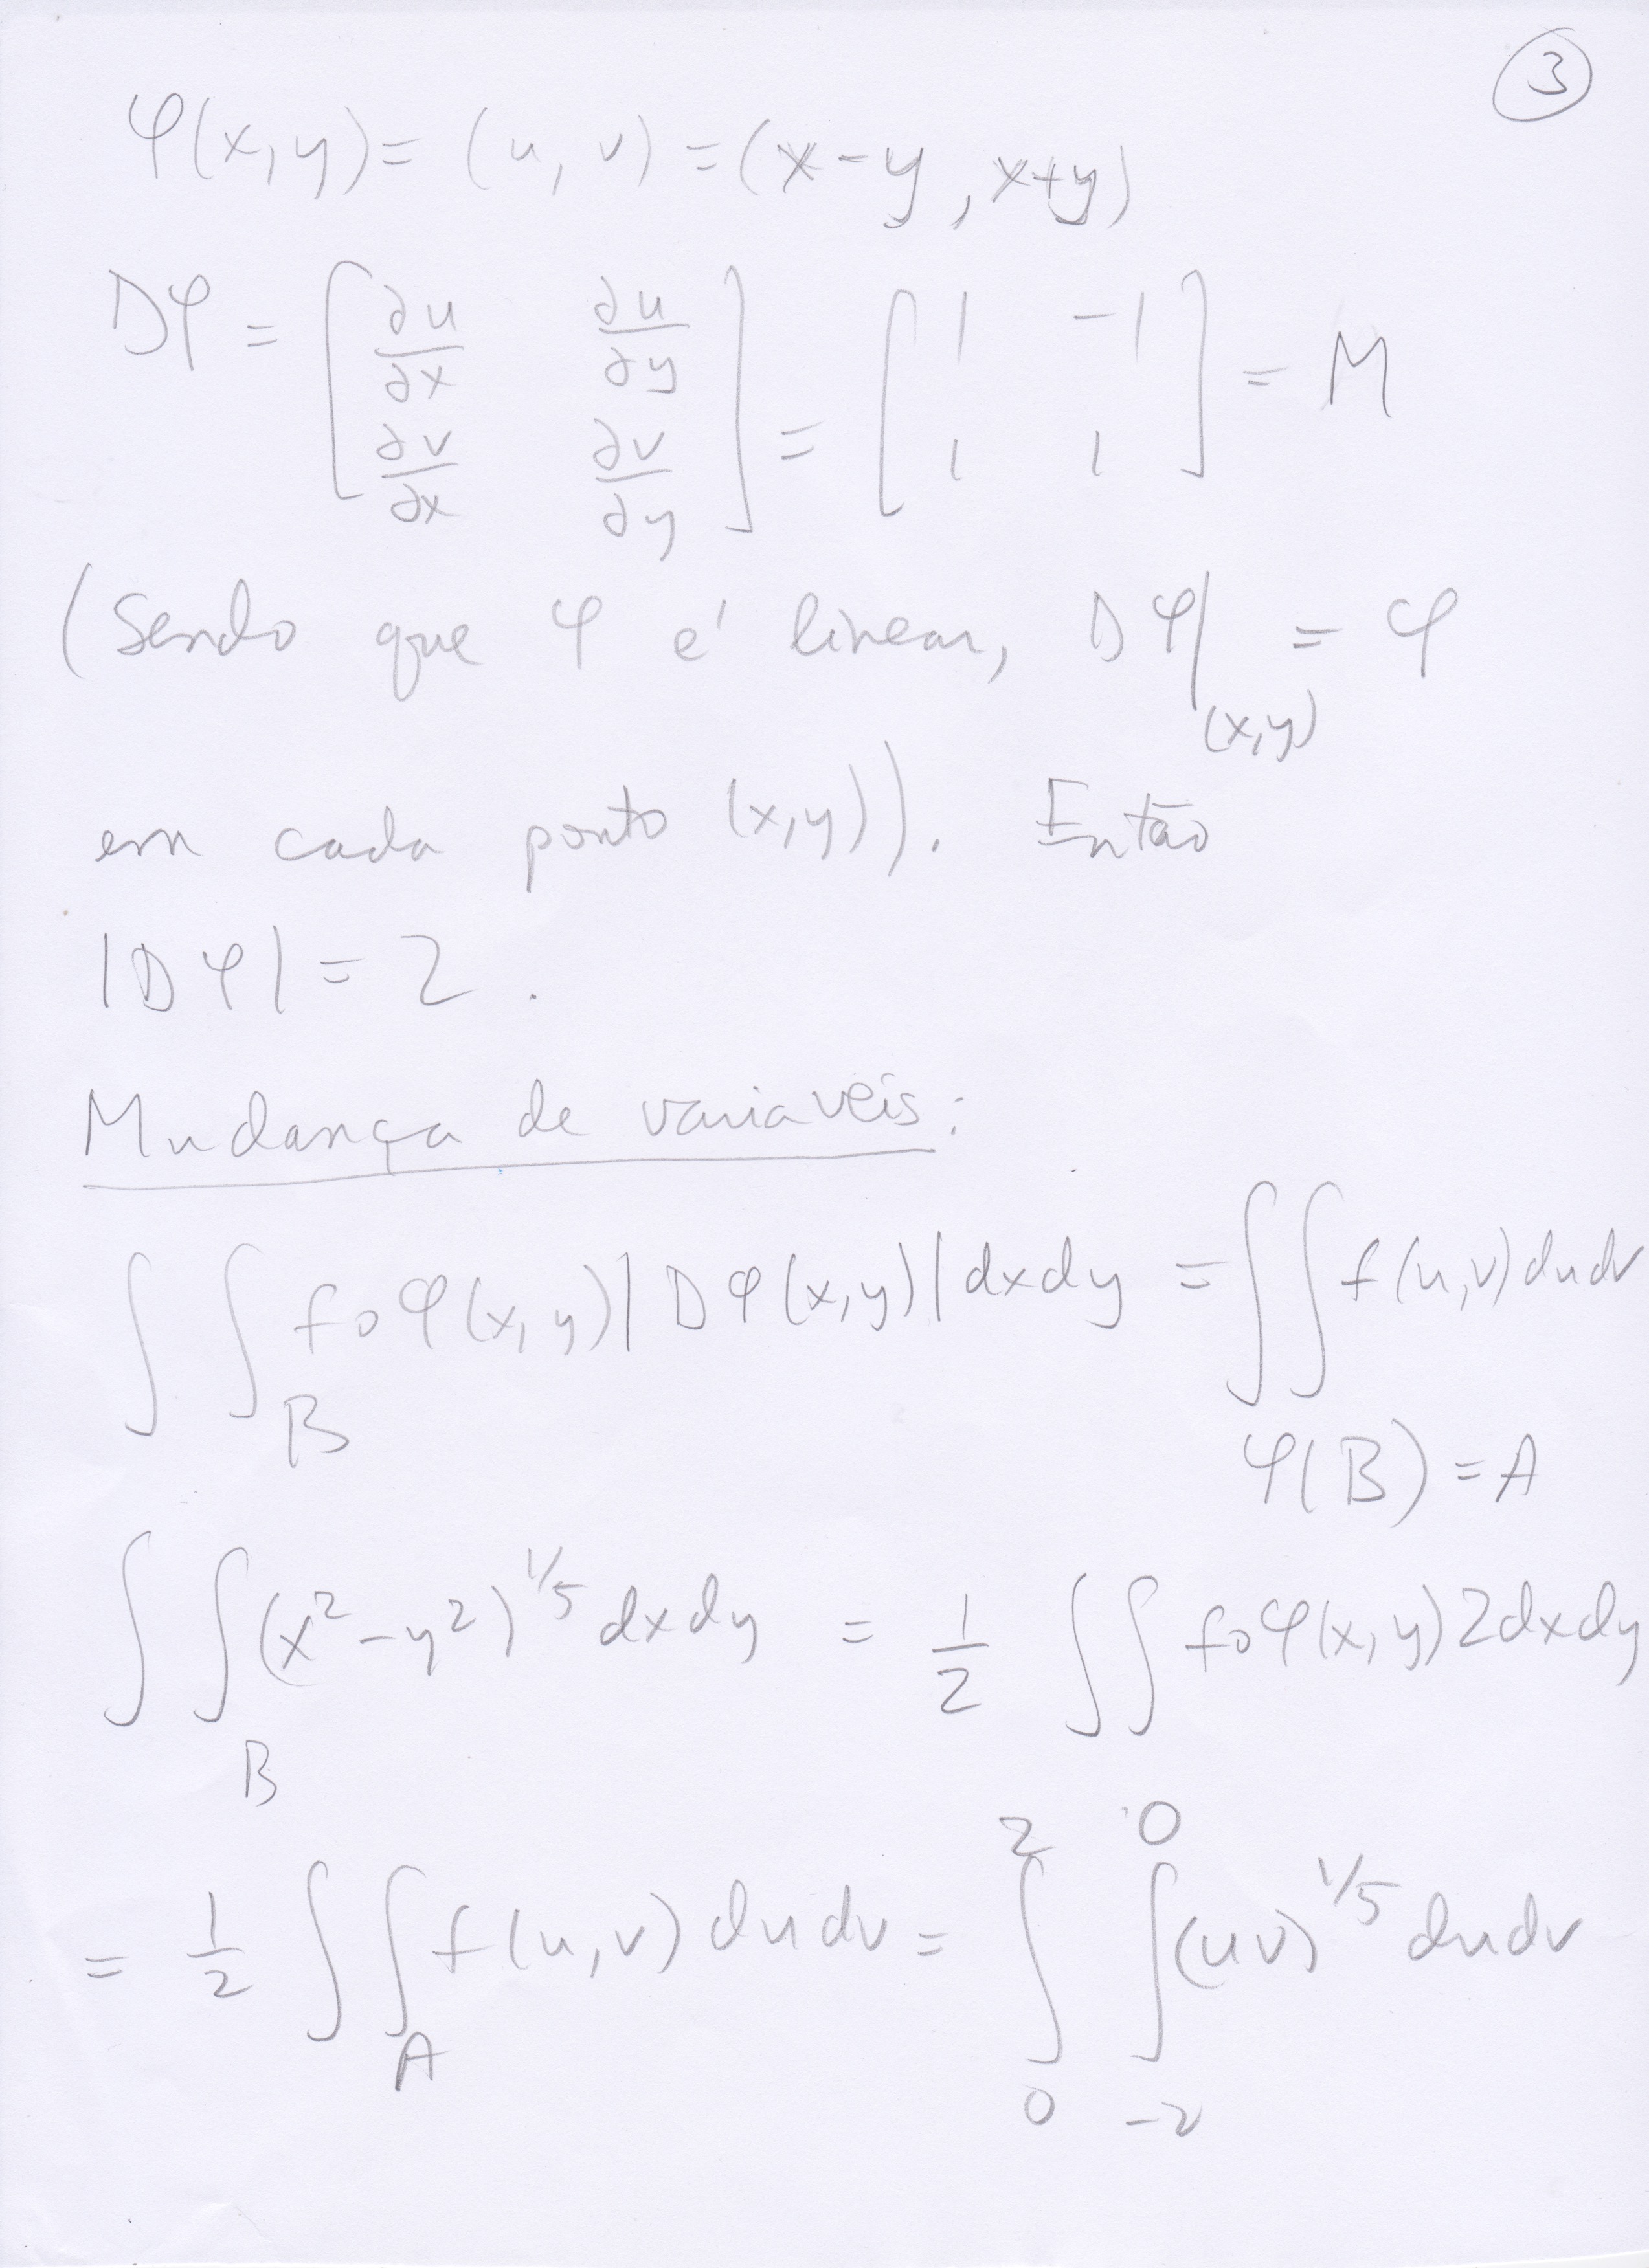 3
φ(x,y) = (u,v) = (x-y, x+y)
Dφ = [∂u/∂x ∂u/∂y ; ∂v/∂x ∂v/∂y] = [1 -1 ; 1 1] = M
(Sendo que φ é linear, Dφ|(x,y) = φ
em cada ponto (x,y)). Então
|Dφ| = 2.
Mudança de variaveis:
∫∫_B f∘φ(x,y)|Dφ(x,y)|dxdy = ∫∫_{φ(B)=A} f(u,v)dudv
∫∫_B (x²-y²)^{1/5} dxdy = 1/2 ∫∫ f∘φ(x,y)2dxdy
= 1/2 ∫∫_A f(u,v) dudv = ∫_0^2 ∫_{-v}^0 (uv)^{1/5} dudv